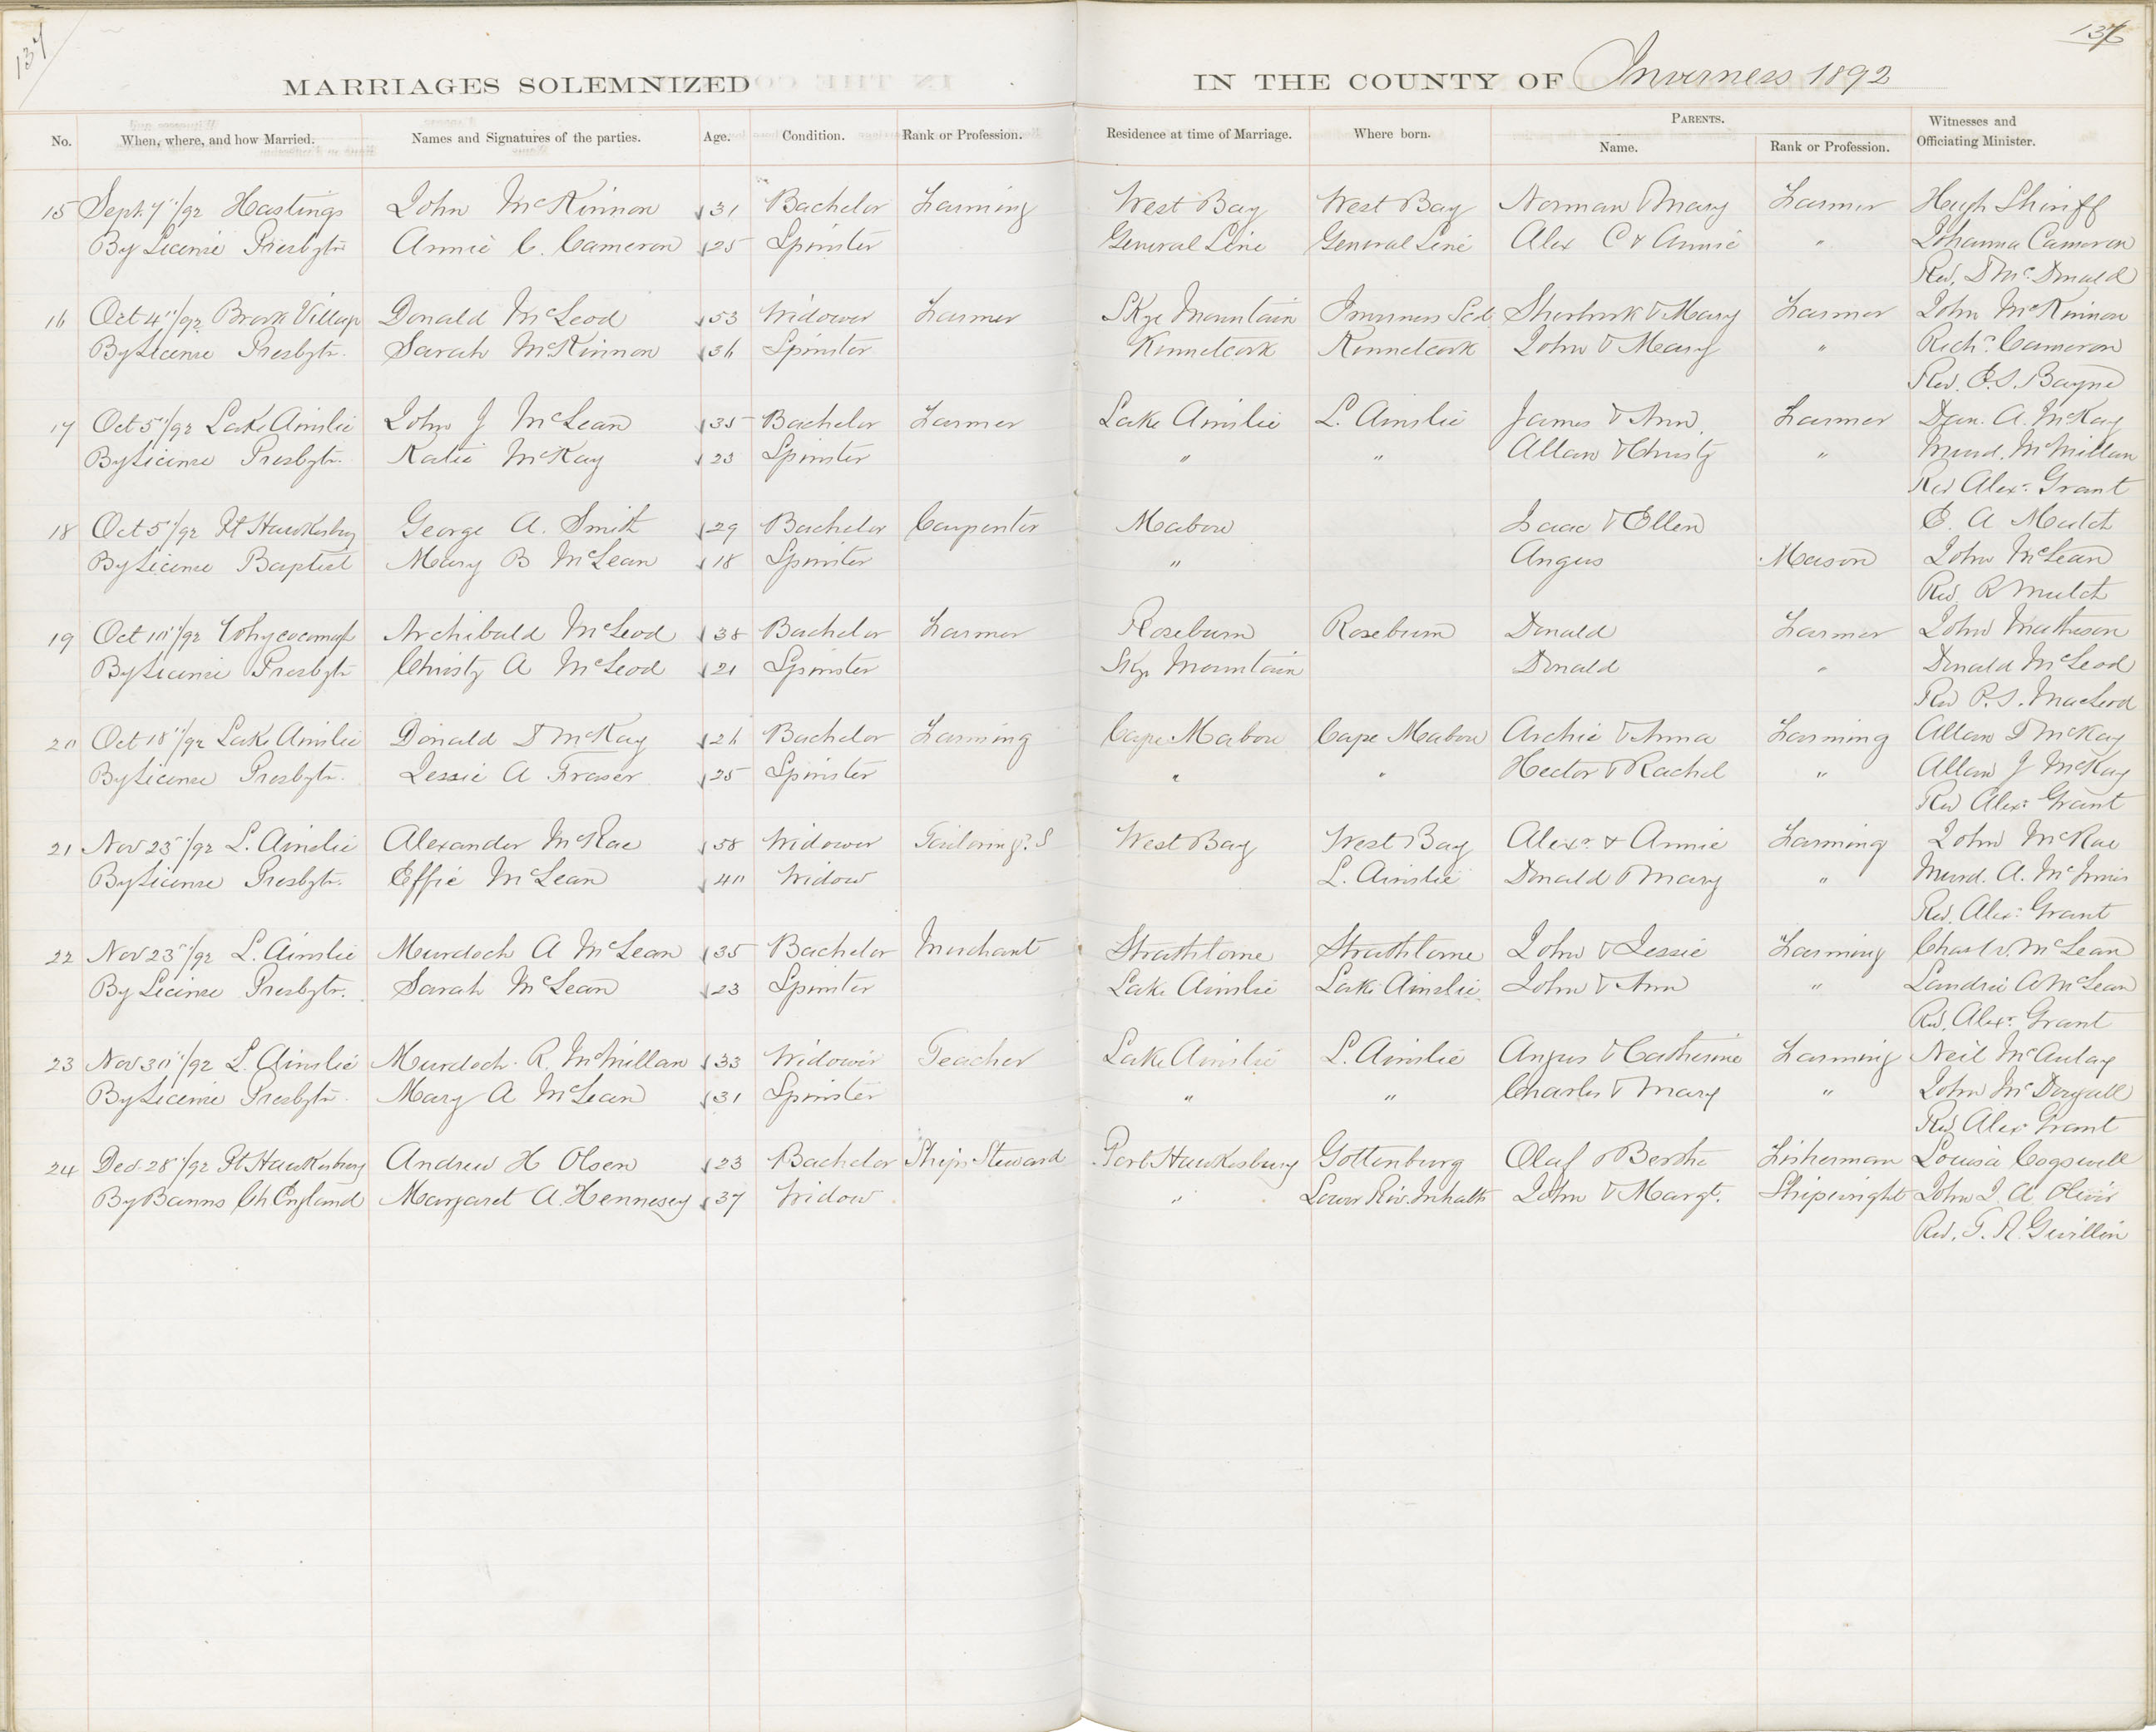 137
137
MARRIAGES SOLEMNIZED IN THE COUNTY OF Inverness 1892
No. When, where, and how Married. Names and Signatures of the parties. Age. Condition. Rank or Profession. Residence at time of Marriage. Where born. PARENTS. Name. Rank or Profession. Witnesses and Officiating Minister.
15 Sept 7"/92 Hastings John McKinnon 31 Bachelor Farming West Bay West Bay Norman & Mary Farmer Hugh Shiriff
By License Presbytn Annie C. Cameron 25 Spinster General Line General Line Alex C & Annie " Johanna Cameron
Rev. D McDonald
16 Oct 4"/92 Brook Village Donald McLeod 53 Widower Farmer Skye Mountain Inverness Scd Mary Farmer John McKinnon
By License Presbytn. Sarah McKinnon 36 Spinster John & Mary " Richd Cameron
Rev. E.S. Bayne
17 Oct 5"/92 Lake Ainslie John J McLean 35 Bachelor Farmer Lake Ainslie L. Ainslie James & Ann Farmer Dan. A. McKay
By License Presbytn. Katie McKay 23 Spinster " " Allan & Christy " Murd. McMillan
Rev Alexr Grant
18 Oct 5"/92 Pt Hawkesbury George A. Smith 29 Bachelor Carpenter Mabou Isaac & Ellen E. A Mutch
By License Baptist Mary B McLean 18 Spinster " Angus Mason John McLean
Rev. R Mutch
19 Oct 10"/92 Whycocomagh Archibald McLeod 38 Bachelor Farmer Roseburn Roseburn Donald Farmer John Matheson
By License Presbytn Christy A McLeod 21 Spinster Skye Mountain Donald " Donald McLeod
Rev P.S. MacLeod
20 Oct 18"/92 Lake Ainslie Donald D McKay 26 Bachelor Farming Cape Mabou Cape Mabou Archie & Anna Farming Allan D McKay
By License Presbytn. Jessie A Fraser 25 Spinster " " Hector & Rachel " Allan J McKay
Rev Alexr Grant
21 Nov 23"/92 L. Ainslie Alexander McRae 58 Widower Tailoring? S West Bay West Bay Alexr & Annie Farming John McRae
By License Presbytn. Effie McLean 40 Widow L. Ainslie Donald & Mary " Murd. A. McInnis
Rev. Alexr Grant
22 Nov 23"/92 L. Ainslie Murdoch A McLean 35 Bachelor Merchant Strathlorne Strathlorne John & Jessie Farming Chas W. McLean
By License Presbytn. Sarah McLean 23 Spinster Lake Ainslie Lake Ainslie John & Ann " A McLean
Rev. Alexr Grant
23 Nov 30"/92 L. Ainslie Murdoch R. McMillan 33 Widower Teacher Lake Ainslie L. Ainslie Angus & Catherine Farming Neil McAulay
By License Presbytn. Mary A McLean 31 Spinster " " Charles & Mary " John McDougall
Rev Alexr Grant
24 Dec. 28"/92 Pt Hawkesbury Andrew H Olsen 23 Bachelor Ship's Steward Port Hawkesbury Gottenburg Olaf & Bertha Fisherman Louisa Cogswell
By Banns Ch England Margaret A. Hennesey 37 Widow " Lower Riv. Inhabts John & Margt. Shipwright John J. A Oliver
Rev. T. R. Gwillim